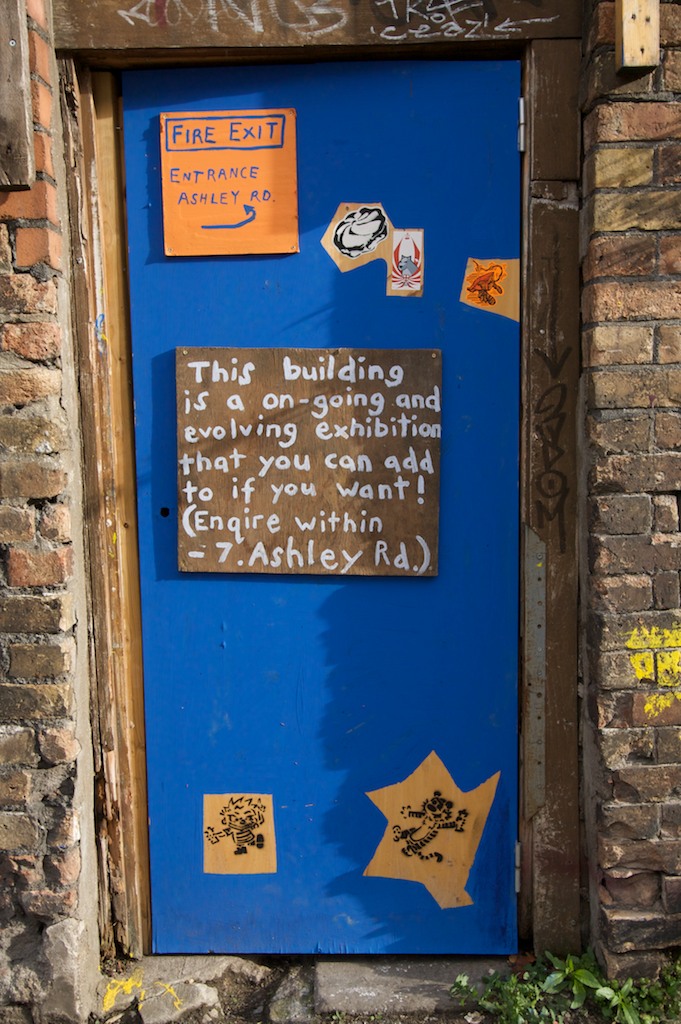 FIRE EXIT
ENTRANCE
ASHLEY RD.
This building
is a on-going and
evolving exhibition
that you can add
to if you want!
(Enqire within
- 7. Ashley Rd.)